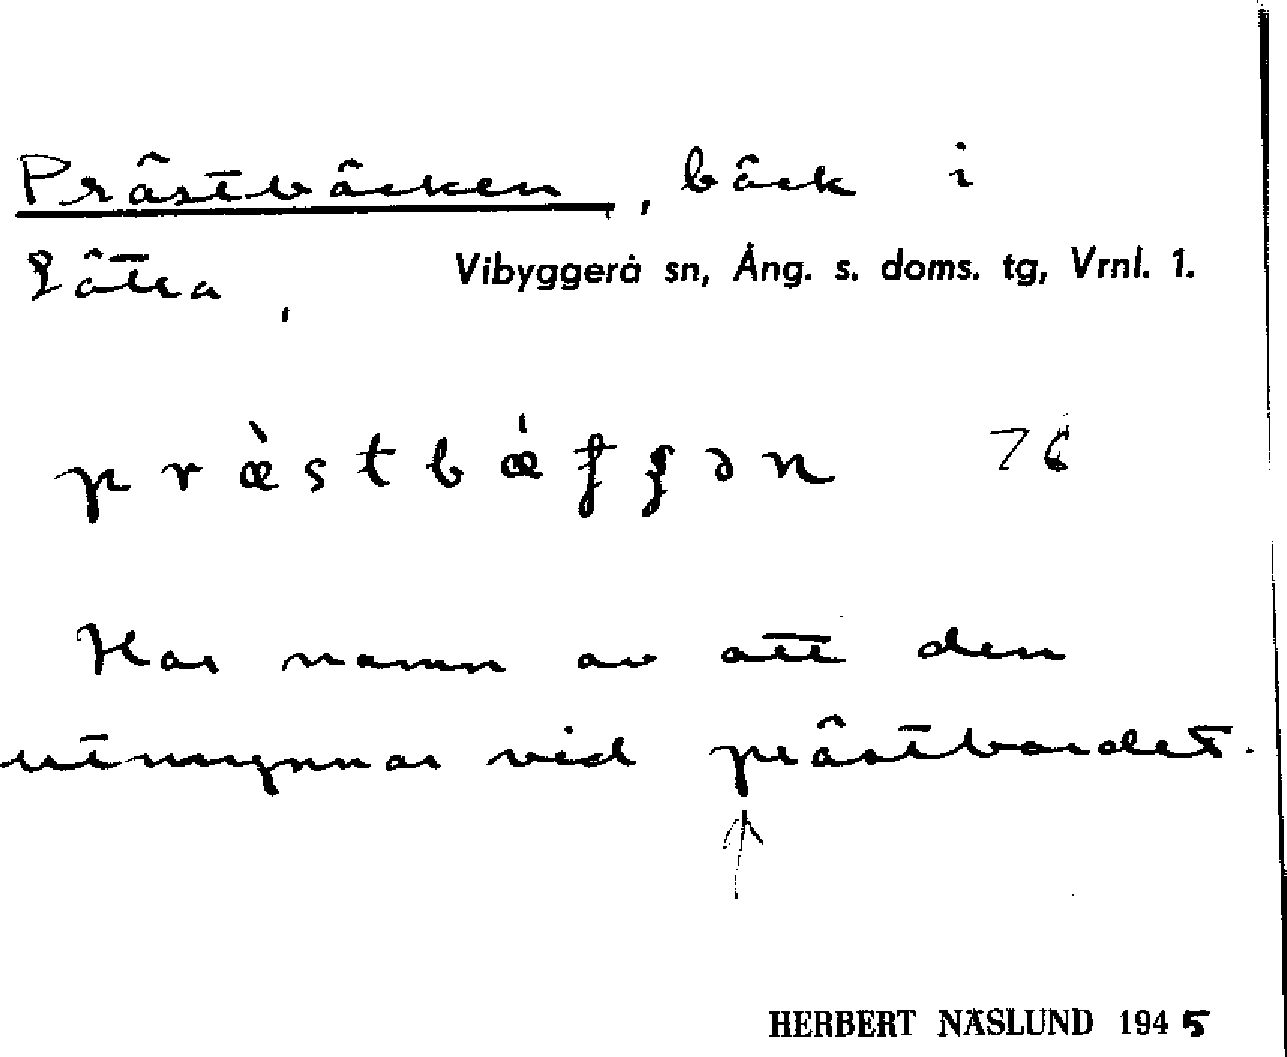 Prästbäcken, bäck i
Sätra, Vibyggerå sn, Ång. s. doms. tg, Vrnl. 1.
76
Har namn av att den
utmynnar vid prästbordet.
HERBERT NÄSLUND 1945